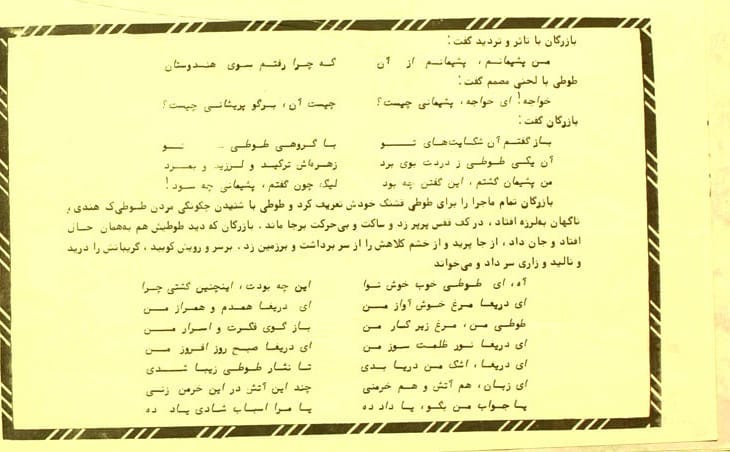 بازرگان با تاثر و تردید گفت:
من پشیمانم، پشیمانم از آن که چرا رفتم سوی هندوستان
طوطی با لحنی مصمم گفت:
خواجه! ای خواجه، پشیمانی چیست؟ چیست آن، برگو پریشانی چیست؟
بازرگان گفت:
باز گفتم آن شکایت‌های تو با گروهی طوطی .. تو
آن یکی طوطی ز دردت بوی برد زهره‌اش ترکید و لرزید و بمرد
من پشیمان گشتم، این گفتن چه بود لیک چون گفتم، پشیمانی چه سود!
بازرگان تمام ماجرا را برای طوطی قشنگ خودش تعریف کرد و طوطی با شنیدن چگونگی مردن طوطی‌ک هندی
ناگهان به‌لرزه افتاد، در کف قفس پرپر زد و ساکت و بی‌حرکت برجا ماند. بازرگان که دید طوطیش هم به‌همان حال
افتاد و جان داد، از جا پرید و از خشم کلاهش را از سر برداشت و برزمین زد. برسر و رویش کوبید، گریبانش را درید
و نالید و زاری سر داد و می‌خواند
آه، ای طوطی خوب خوش نوا این چه بودت، اینچنین گشتی چرا
ای دریغا مرغ خوش آواز من ای دریغا همدم و همراز من
طوطی من، مرغ زیر کسار من باز گوی فکرت و اسرار من
ای دریغا نور ظلمت سوز من ای دریغا صبح روز افروز من
ای دریغا، اشک من دریا بدی تا نثار طوطی زیبا شدی
ای زبان، هم آتش و هم خرمنی چند این آتش در این خرمن زنی
یا جواب من بگو، یا داد ده یا مرا اسباب شادی یاد ده